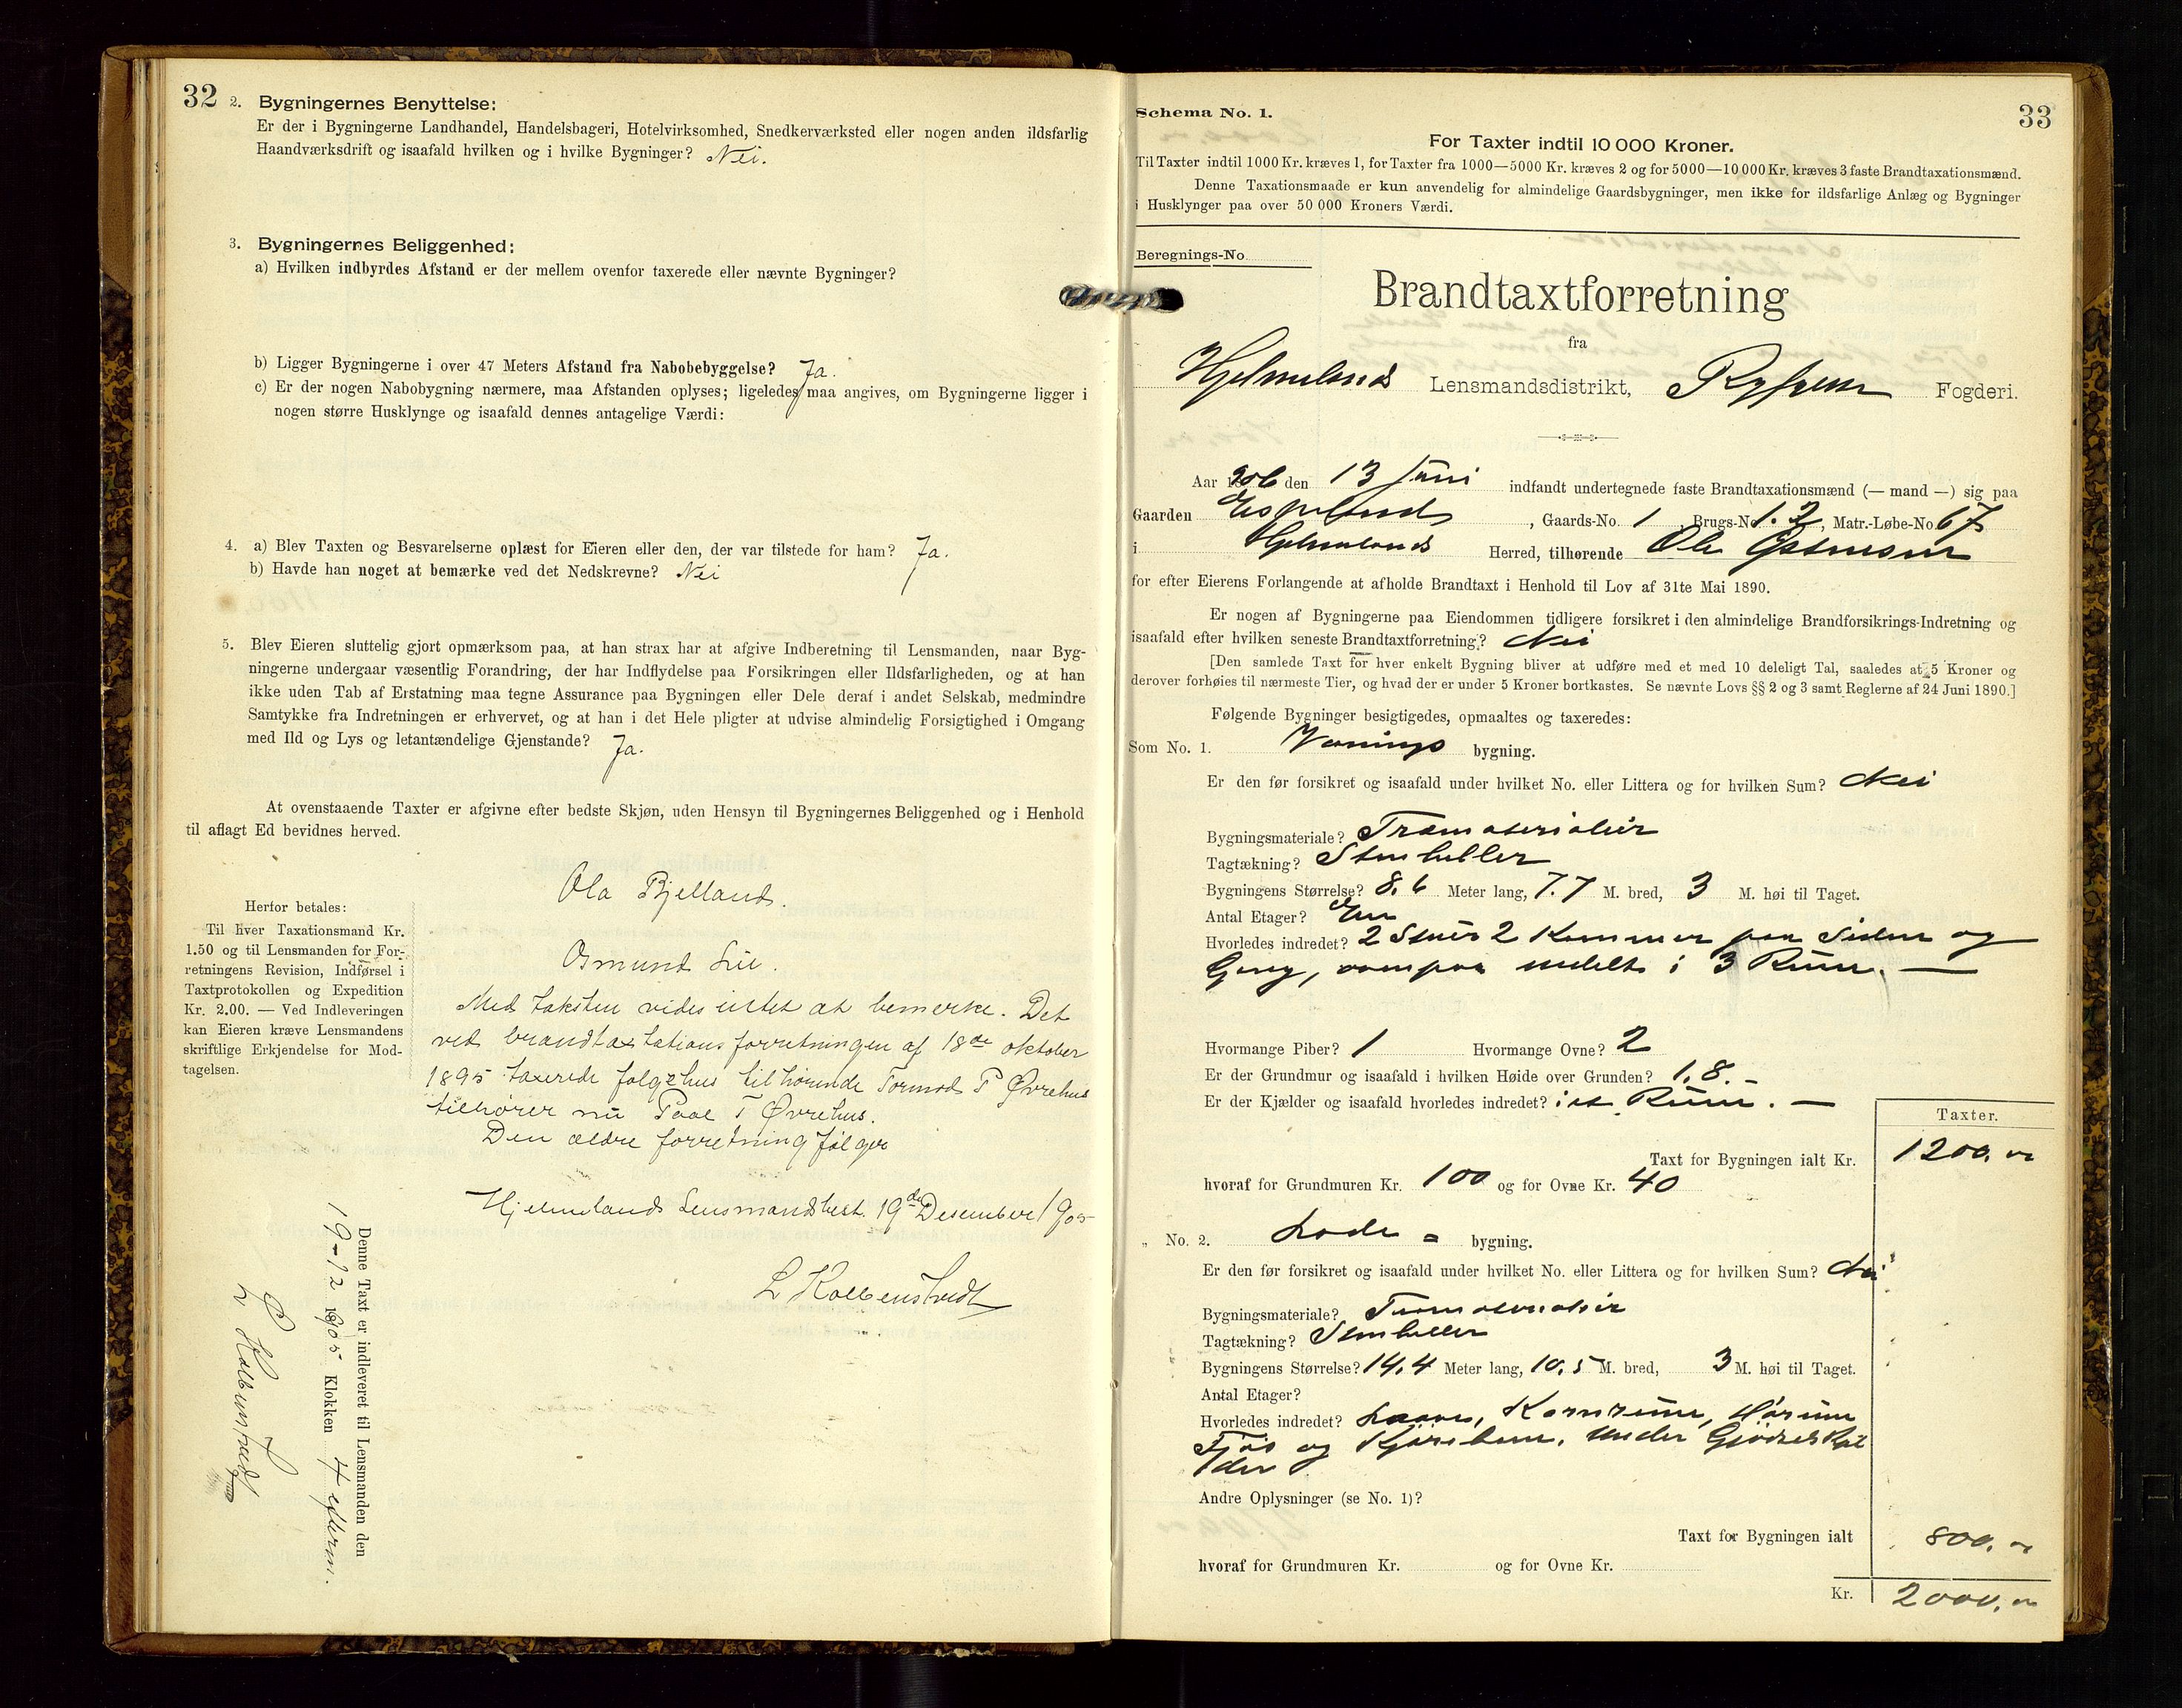 32
2. Bygningernes Benyttelse:
Er der i Bygningerne Landhandel, Handelsbageri, Hotelvirksomhed, Snedkerværksted eller nogen anden ildsfarlig
Haandværksdrift og isaafald hvilken og i hvilke Bygninger? Nei.
3. Bygningernes Beliggenhed:
a) Hvilken indbyrdes Afstand er der mellem ovenfor taxerede eller nævnte Bygninger?
b) Ligger Bygningerne i over 47 Meters Afstand fra Nabobebyggelse? Ja.
c) Er der nogen Nabobygning nærmere, maa Afstanden oplyses; ligeledes maa angives, om Bygningerne ligger i
nogen større Husklynge og isaafald dennes antagelige Værdi:
4. a) Blev Taxten og Besvarelserne oplæst for Eieren eller den, der var tilstede for ham? Ja.
b) Havde han noget at bemærke ved det Nedskrevne? Nei
5. Blev Eieren sluttelig gjort opmærksom paa, at han strax har at afgive Indberetning til Lensmanden, naar Byg-
ningerne undergaar væsentlig Forandring, der har Indflydelse paa Forsikringen eller Ildsfarligheden, og at han
ikke uden Tab af Erstatning maa tegne Assurance paa Bygningen eller Dele deraf i andet Selskab, medmindre
Samtykke fra Indretningen er erhvervet, og at han i det Hele pligter at udvise almindelig Forsigtighed i Omgang
med Ild og Lys og letantændelige Gjenstande? Ja.
At ovenstaaende Taxter er afgivne efter bedste Skjøn, uden Hensyn til Bygningernes Beliggenhed og i Henhold
til aflagt Ed bevidnes herved.
Ola Bjelland.
Osmund Lie.
Herfor betales:
Til hver Taxationsmand Kr.
1.50 og til Lensmanden for For-
retningens Revision, Indførsel i
Taxtprotokollen og Expedition
Kr. 2.00. — Ved Indleveringen
kan Eieren kræve Lensmandens
skriftlige Erkjendelse for Mod-
tagelsen.
Med taksten vides intet at bemerke. Det
ved brandtaxtationsforretningen af 18de oktober
1895 taxerede følgehus tilhørende Tormod P Øvrehus
tilhører nu Paal T Øvrehus.
Den ældre forretning følger
Hjelmelands Lensmandsbest. 19de Desember 1905
L Kolbenstvedt
Denne Taxt er indleveret til Lensmanden den
19-12 1905 Klokken 4 efterm.
L Kolbenstvedt
33
Schema No. 1.
For Taxter indtil 10 000 Kroner.
Til Taxter indtil 1000 Kr. kræves 1, for Taxter fra 1000—5000 Kr. kræves 2 og for 5000—10 000 Kr. kræves 3 faste Brandtaxationsmænd.
Denne Taxationsmaade er kun anvendelig for almindelige Gaardsbygninger, men ikke for ildsfarlige Anlæg og Bygninger
i Husklynger paa over 50 000 Kroners Værdi.
Beregnings-No.
Brandtaxtforretning
fra
Hjelmelands Lensmandsdistrikt, Ryfylke Fogderi.
Aar 1906 den 13 Juni indfandt undertegnede faste Brandtaxationsmænd (— mand —) sig paa
Gaarden Espeland, Gaards-No. 1, Brugs-No. 1.2, Matr.-Løbe-No. 67
i Hjelmelands Herred, tilhørende Ole
for efter Eierens Forlangende at afholde Brandtaxt i Henhold til Lov af 31te Mai 1890.
Er nogen af Bygningerne paa Eiendommen tidligere forsikret i den almindelige Brandforsikrings-Indretning og
isaafald efter hvilken seneste Brandtaxtforretning? Nei
[Den samlede Taxt for hver enkelt Bygning bliver at udføre med et med 10 deleligt Tal, saaledes at 5 Kroner og
derover forhøies til nærmeste Tier, og hvad der er under 5 Kroner bortkastes. Se nævnte Lovs §§ 2 og 3 samt Reglerne af 24 Juni 1890.]
Følgende Bygninger besigtigedes, opmaaltes og taxeredes:
Som No. 1. Vaanings bygning.
Er den før forsikret og isaafald under hvilket No. eller Littera og for hvilken Sum? Nei
Bygningsmateriale? Træmaterialier
Tagtækning? Stenheller
Bygningens Størrelse? 8.6 Meter lang, 7.7 M. bred, 3 M. høi til Taget.
Antal Etager? En
Hvorledes indredet? 2 Stuer 2 Kammer paa Siden og
Gang, ovenpaa indelt i 3 Rum. —
Hvormange Piber? 1 Hvormange Ovne? 2
Er der Grundmur og isaafald i hvilken Høide over Grunden? 1.8. —
Er der Kjælder og isaafald hvorledes indredet? i et Rum. —
Taxter.
Taxt for Bygningen ialt Kr. 1200.00
hvoraf for Grundmuren Kr. 100 og for Ovne Kr. 40
„ No. 2. Lade = bygning.
Er den før forsikret og isaafald under hvilket No. eller Littera og for hvilken Sum? Nei
Bygningsmateriale? Træmaterialier
Tagtækning? Stenheller
Bygningens Størrelse? 14.4 Meter lang, 10.5 M. bred, 3 M. høi til Taget.
Antal Etager?
Hvorledes indredet? Laave, Kornrum, Hørum
Fjøs og Kjørebru. Under Gjødselskjæl
der
Andre Oplysninger (se No. 1)?
Taxt for Bygningen ialt 800.00
hvoraf for Grundmuren Kr. og for Ovne Kr.
Kr. 2000.00